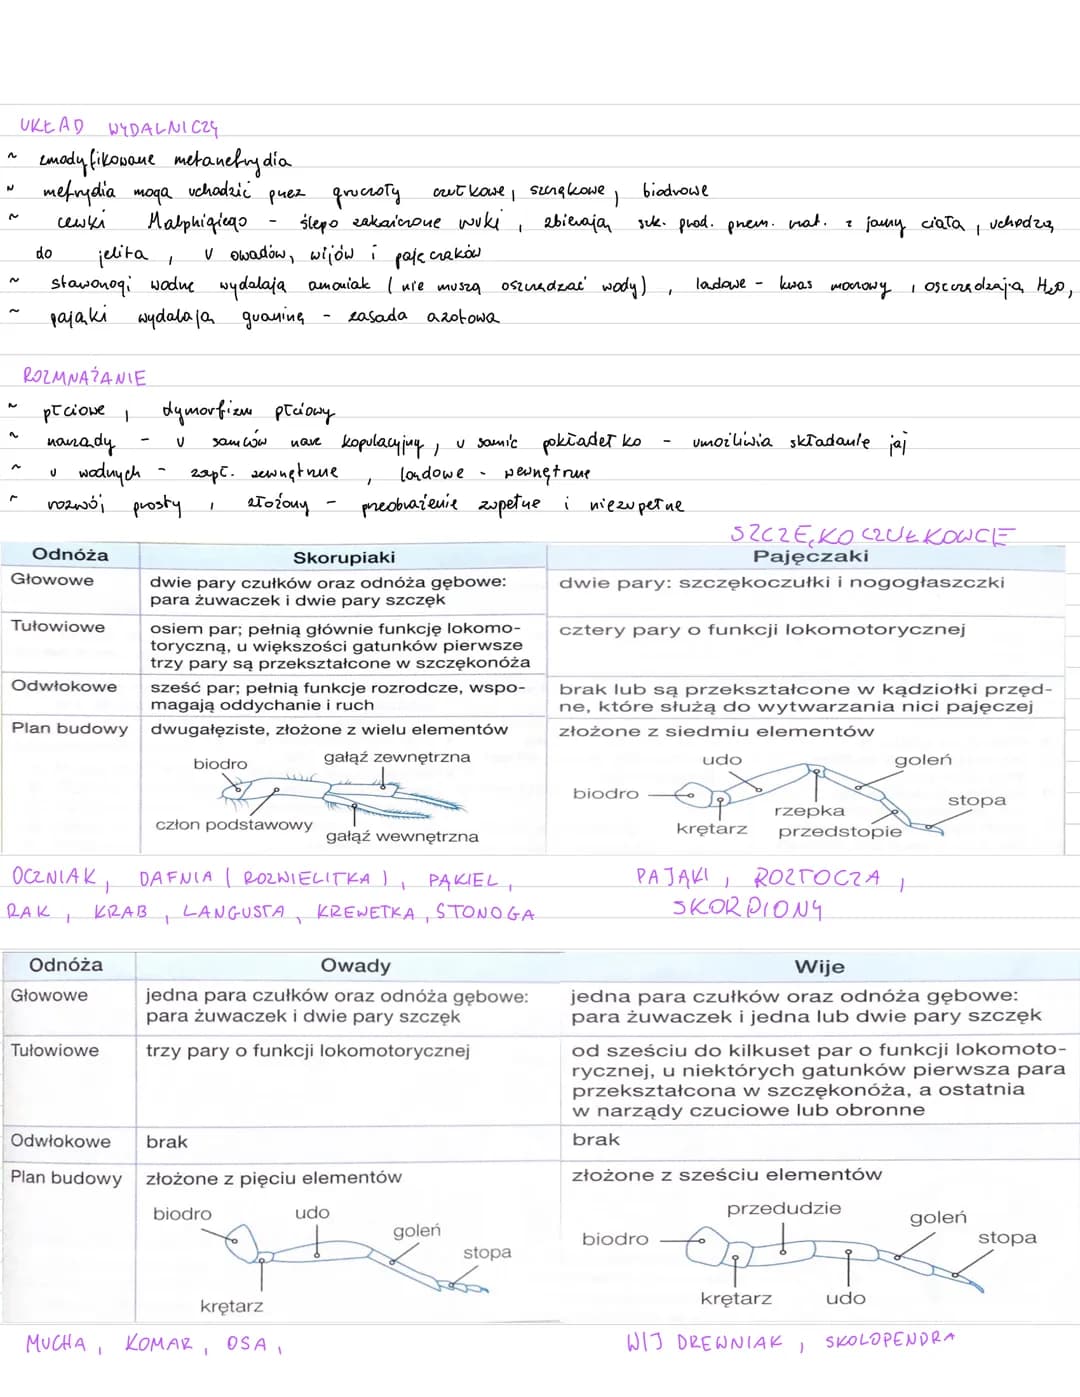 UKŁAD WYDALNICZY
~ zmodyfikowane metanefrydia
~ mefrydia mogą uchodzić przez gruczoły czułkowe, szczękowe, biodrowe
~ cewki Malphigiego - ślepo zakończone worki, zbierają szk. prod. przem. mat. z jamy ciała, uchodzą
do jelita, u owadów, wijów i pajęczaków
~ stawonogi wodne wydalają amoniak (nie muszą oszczędzać wody), lądowe - kwas moczowy, oszczędzają H₂O,
~ pająki wydalają guaninę - zasada azotowa
ROZMNAŻANIE
~ płciowe, dymorfizm płciowy
~ narządy - u samców narz kopulacyjny, u samic pokładełko - umożliwia składanie jaj
~ u wodnych - zapł. zewnętrzne, lądowe - wewnętrzne
~ rozwój prosty, złożony - przeobrażenie zupełne i niezupełne
SZCZĘKOCZUŁKOWCE
Odnóża Skorupiaki Pajęczaki
Głowowe dwie pary czułków oraz odnóża gębowe: dwie pary: szczękoczułki i nogogłaszczki
para żuwaczek i dwie pary szczęk
Tułowiowe osiem par; pełnią głównie funkcję lokomo- cztery pary o funkcji lokomotorycznej
toryczną, u większości gatunków pierwsze
trzy pary są przekształcone w szczękonóża
Odwłokowe sześć par; pełnią funkcje rozrodcze, wspo- brak lub są przekształcone w kądziołki przęd-
magają oddychanie i ruch ne, które służą do wytwarzania nici pajęczej
Plan budowy dwugałęziste, złożone z wielu elementów złożone z siedmiu elementów
biodro gałąź zewnętrzna udo goleń
biodro stopa
człon podstawowy rzepka
gałąź wewnętrzna krętarz przedstopie
OCZNIAK, DAFNIA (ROZWIELITKA), PĄKIEL, PAJĄKI, ROZTOCZA,
RAK, KRAB, LANGUSTA, KREWETKA, STONOGA SKORPIONY
Odnóża Owady Wije
Głowowe jedna para czułków oraz odnóża gębowe: jedna para czułków oraz odnóża gębowe:
para żuwaczek i dwie pary szczęk para żuwaczek i jedna lub dwie pary szczęk
Tułowiowe trzy pary o funkcji lokomotorycznej od sześciu do kilkuset par o funkcji lokomoto-
rycznej, u niektórych gatunków pierwsza para
przekształcona w szczękonóża, a ostatnia
w narządy czuciowe lub obronne
Odwłokowe brak brak
Plan budowy złożone z pięciu elementów złożone z sześciu elementów
biodro udo przedudzie
goleń goleń
stopa biodro stopa
krętarz krętarz udo
MUCHA, KOMAR, OSA, WIJ DREWNIAK, SKOLOPENDRA